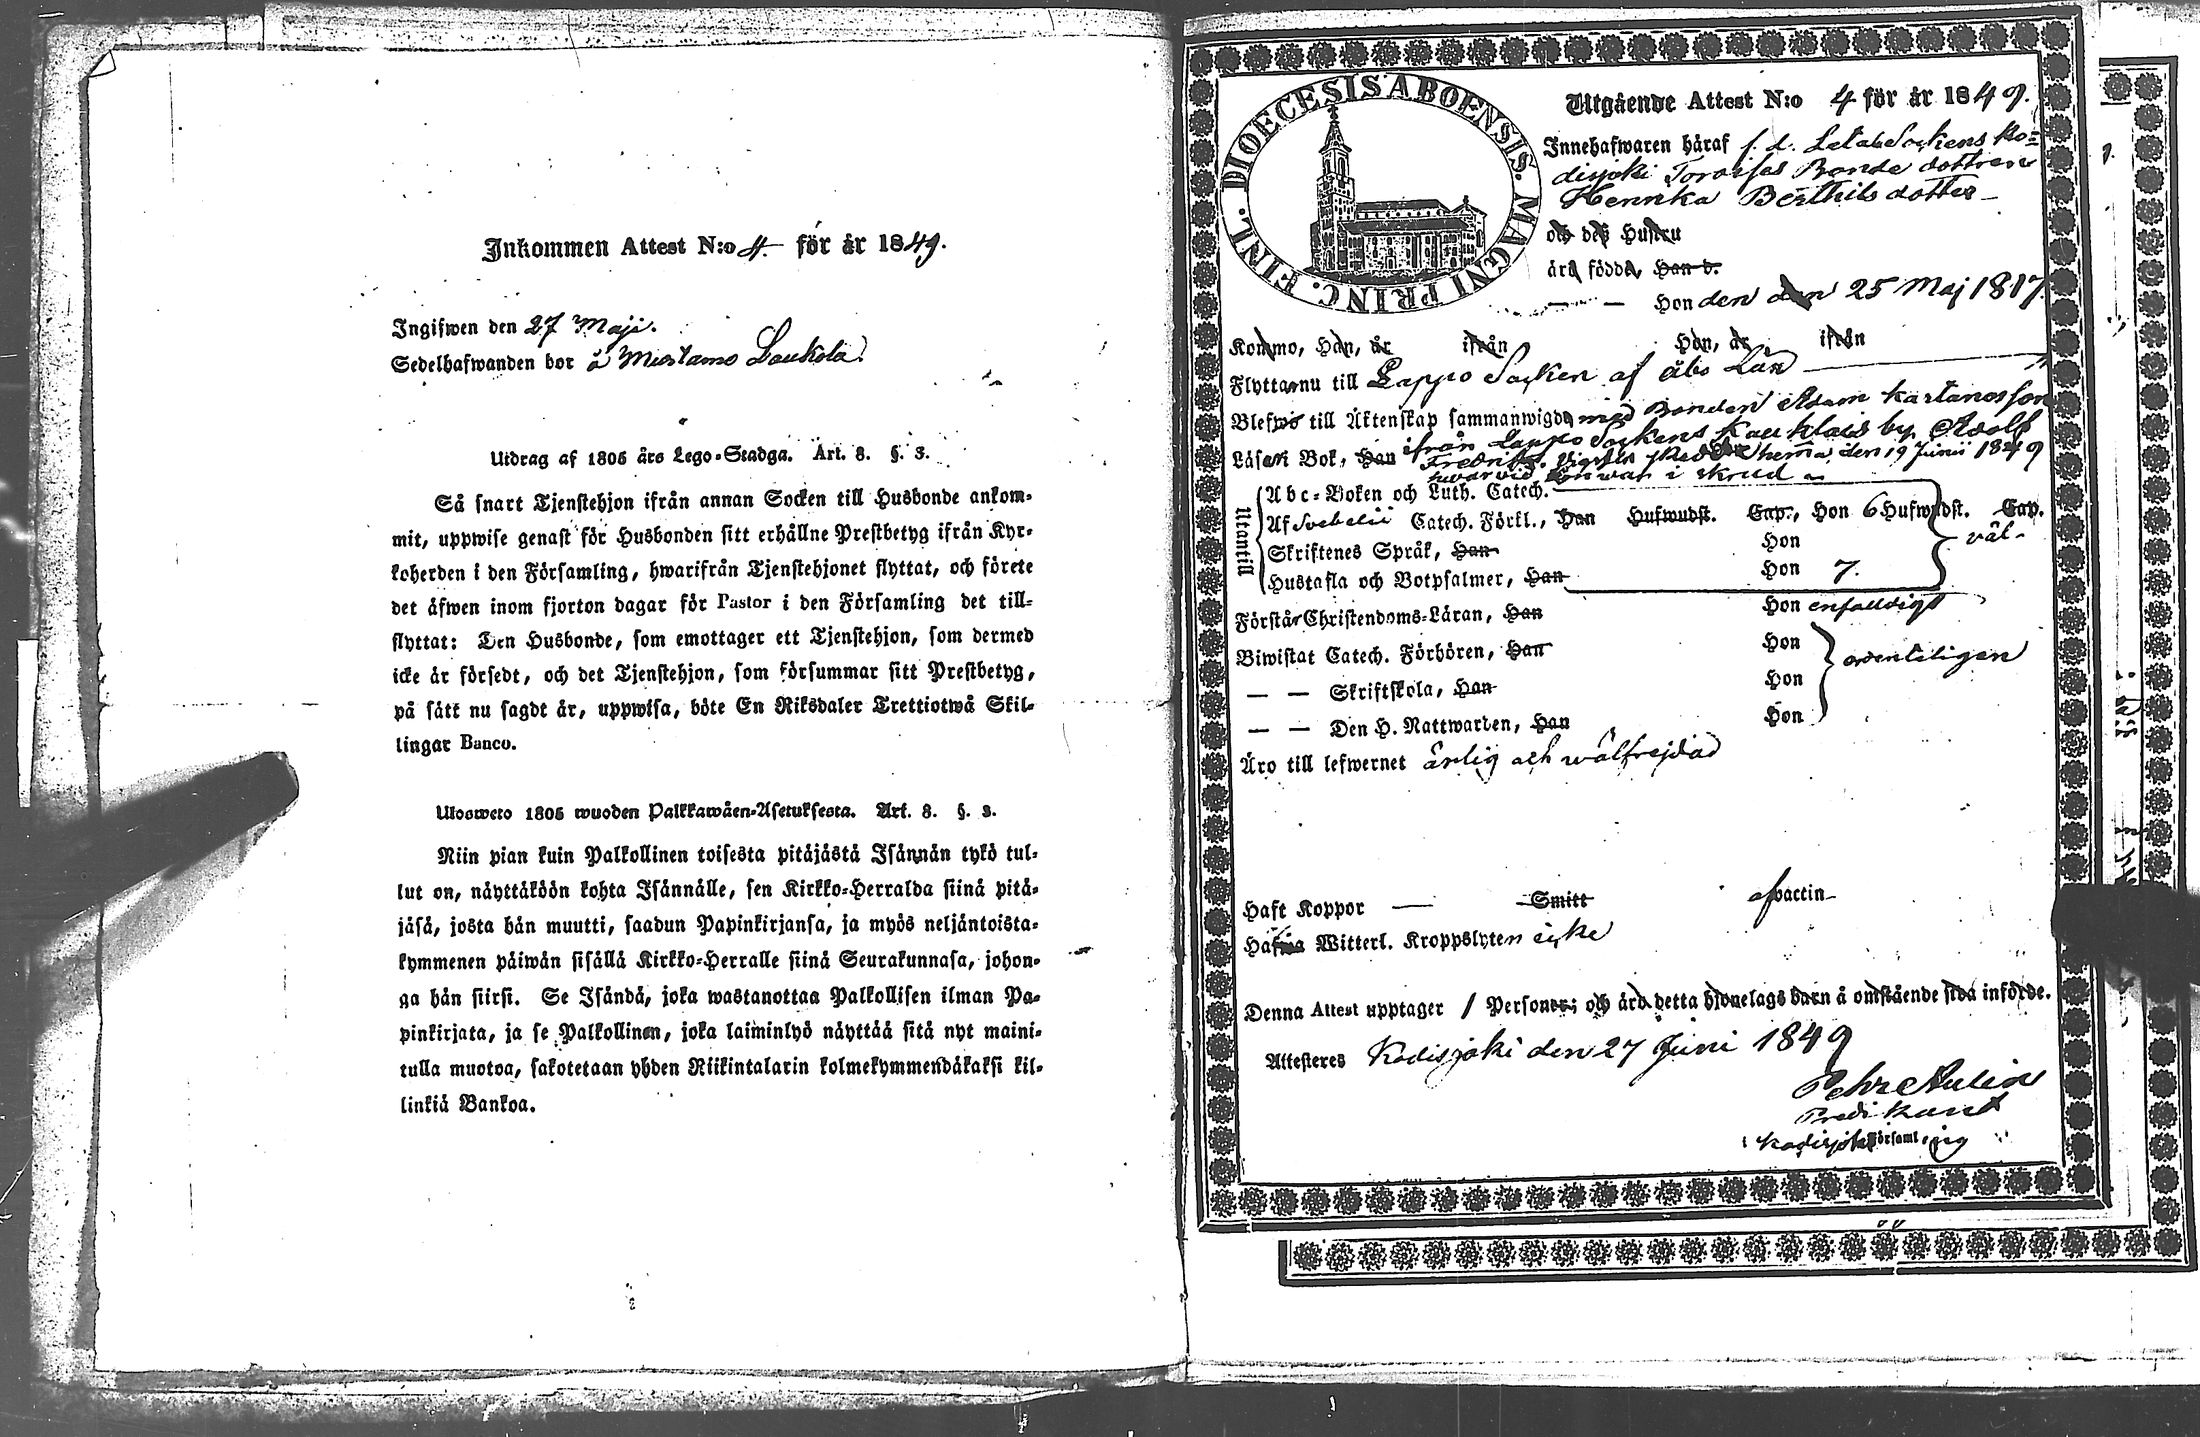 Inkommen Attest N:o 4. för år 1849.
Ingifwen den 27 Maji.
Sedelhafwanden bor å Mustamo Laukola.
Utdrag af 1805 års Lego-Stadga. Art. 8. §. 3.
Så snart Tjenstehjon ifrån annan Socken till Husbonde ankom-
mit, uppwise genast för Husbonden sitt erhållne Prestbetyg ifrån Kyr-
koherden i den Församling, hwarifrån Tjenstehjonet flyttat, och förete
det äfwen inom fjorton dagar för Pastor i den Församling det till-
flyttat: Den Husbonde, som emottager ett Tjenstehjon, som dermed
icke är försedt, och det Tjenstehjon, som försummar sitt Prestbetyg,
på sätt nu sagdt är, uppwisa, böte En Riksdaler Trettiotwå Skil-
lingar Banco.
Uloswero 1805 wuoden Palkkawäen-Asetuksesta. Art. 8. §. 3.
Niin pian kuin Palkollinen toisesta pitäjästä Isännän tykö tul-
lut on, näyttäköön kohta Isännälle, sen Kirkko-Herralda siinä pitä-
jäsä, josta hän muutti, saadun Papinkirjansa, ja myös neljäntoista-
kymmenen päiwän sisällä Kirkko-Herralle siinä Seurakunnasa, johon-
ga hän siirsi. Se Isändä, joka wastanottaa Palkollisen ilman Pa-
pinkirjata, ja se Palkollinen, joka laiminlyö näyttää sitä nyt maini-
tulla muotoa, sakotetaan yhden Riikintalarin kolmekymmendäkaksi kil-
linkiä Bankoa.
DIOECESIS ABOENSIS. MAGNI PRINC. FINL.
Utgående Attest N:o 4 för år 1849.
Innehafwaren häraf f. d. Sockens Ko=
disjoki Bonde dottren
Henrika Berthils dotter
och dess Hustru
äro födde, Han d.
— — Hon den den 25 Maj 1817.
Kommo, Han, år ifrån Hon, år ifrån
Flytta nu till Lappo Socken af Åbo Län
Blefwo till Äktenskap sammanwigde med Bonden Adam Kartanosson
ifrån Lappo Sockens Kauklais by, Adolf
Läsa i Bok, Han Fredrik hema, den 19 Junii 1849
hwarvid hon war i skrud
Utantill
Abc-Boken och Luth. Catech.
Af Svebelii Catech. Förkl., Han Hufwudst. Cap., Hon 6 Hufwudst. Cap.
Skriftenes Språk, Han Hon väl
Hustafla och Botpsalmer, Han Hon 7.
Förstår Christendoms-Läran, Han Hon enfaldigt
Biwistat Catech. Förhören, Han Hon ordentligen
— — Skriftskola, Han Hon
— — Den H. Nattwarden, Han Hon
Äro till lefwernet ärlig och wälfrejdad
Haft Koppor — Smitt af vaccin
Hafwa Witterl. Kroppslyten icke
Denna Attest upptager 1 Personer; och äro detta hjonelags barn å omstående sida införde.
Attesteres Kodisjoki den 27 Juni 1849
Pehr Aulin
Predikant
i Kodisjoki Församling